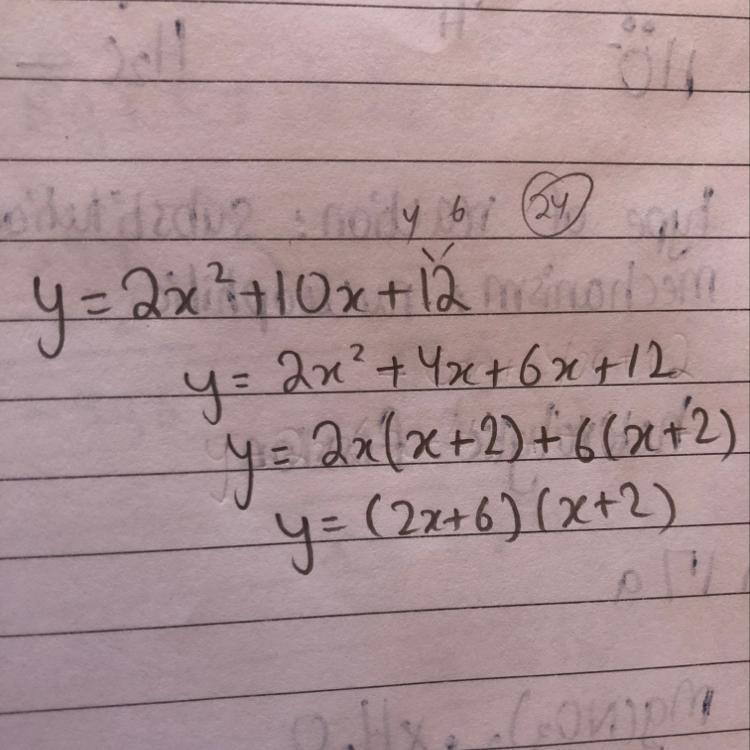 4 6 24
y = 2x² + 10x + 12
y = 2x² + 4x + 6x + 12
y = 2x(x+2) + 6(x+2)
y = (2x+6)(x+2)